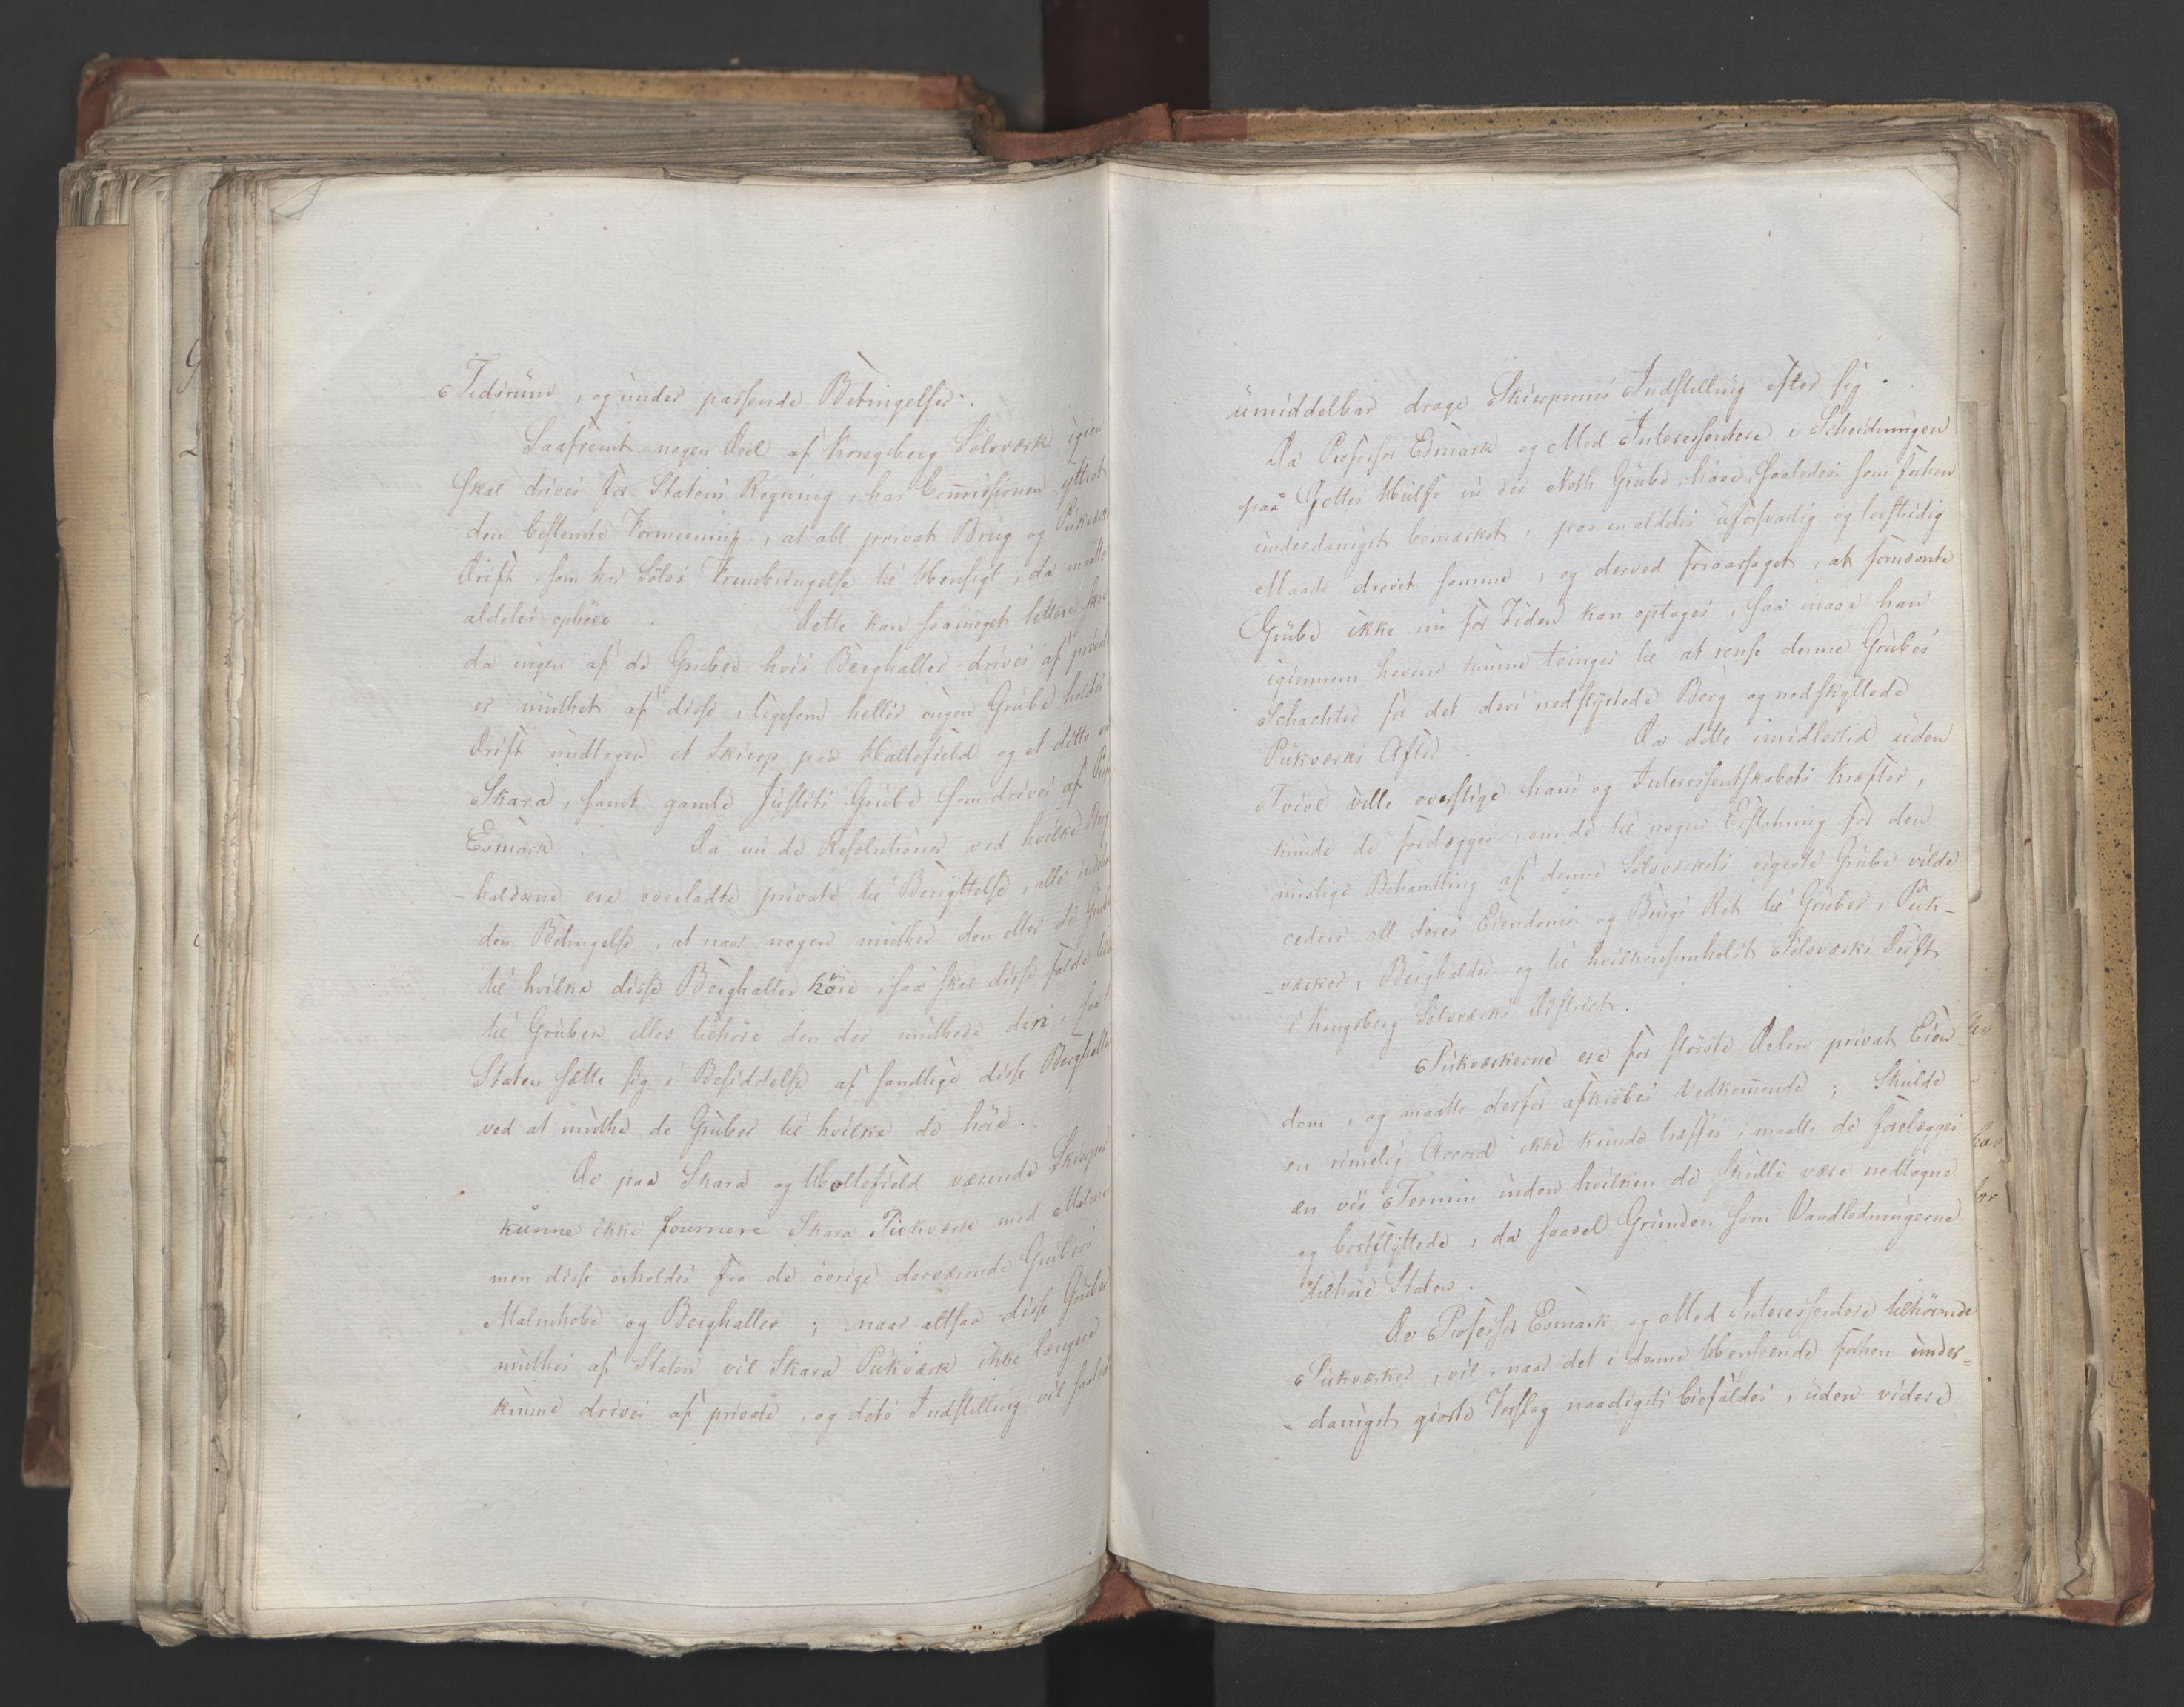 Tidsrum, og under passende Betingelser.
Saafremt nogen Deel af Kongsberg Sölvværk igien
skal drives for Statens Regning, har Commissionen yttret
den bestemte Formeening, at alt privat Brug og Pukværks
Drift, som har Sölvs Frembringelse til Hensigt, da maatte
aldeles ophöre. Dette kan saameget lettere skee
da ingen af de Gruber hvis Berghalder drives af private
er muthet af disse, ligesom heller ingen Grube holdes
Drift undtagen et Skierp paa Haltefield og et ditto
Skara, samt gamle Justits Grube som drives af
Esmark. Da nu de Resolutioner ved hvilke Berg
-halderne ere overladte private til Benyttelse, alle
den Betingelse, at naar nogen muther den eller de Gruber
til hvilke disse Berghalder höre, saa skal disse falde
til Gruben eller tilhöre den der muthede den, saa
Staten sætte sig i Besiddelse af samtlige disse Berghalder
ved at muthe de Gruber til hvilke de höre.
De paa Skara og Haltefield værende Skierper
kunne ikke fournere Skara Pukværk med Malm
men disse erholdes fra de övrige derværende Grubers
Malmhobe og Berghalder; naar altsaa disse Gruber
muthes af Staten vil Skara Pukværk ikke længere
kunne drives af private, og dets Indstilling vil saaledes
umiddelbar drage Skierpernes Indstilling efter sig.
Da Professor Esmark og Med Interessentere i Scheidningen
paa Gottes Hülfe in der Noth Grube, have, saaledes som forhen
underdanigst bemærket, paa en aldeles uforsvarlig og lovstridig
Maade drevet samme, og derved foraarsaget, at fornevnte
Grube ikke nu for Tiden kan optages, saa maae han
igiennem Lovene kunne tvinges til at rense denne Grubes
Schachter for det deri nedstyrtede Berg og nedskyllede
Pukværks After. Da dette imidlertid uden
Tvivl ville overstige hans og Interessentskabets Kræfter,
kunde de forelægges, om de til nogen Erstatning for den
urislige Behandling af denne Sölvværkets vigtigste Grube vilde
cedere all deres Eiendoms og Brugs Ret til Gruber, Puk-
-værker, Berghalder og til hvilkensomhelst Sölvværks Drift
i Kongsberg Sölvværks District.
Pukværkerne ere for störste Delen privat Eien-
dom, og maatte derfor afkiöbes Vedkommende; Skulde
en rimelig Accord ikke kunde træffes, maatte de forelægges
en vis Termin inden hvilken de skulle være nedtagne
og bortflyttede, da saavel Grunden som Vandledningerne
tilhöre Staten.
De Professor Esmark og Med Interessentere tilhörende
Pukværker, vil, naar det i denne Henseende forhen under-
-danigst giorte Forslag naadigst biefaldes, uden videre